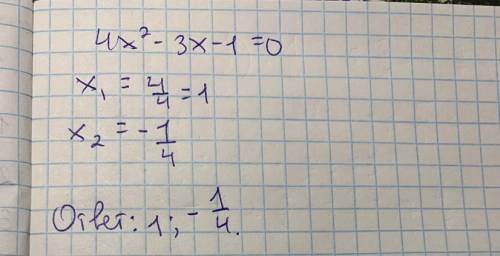 4x² - 3x - 1 = 0
x₁ = 4/4 = 1
x₂ = - 1/4
Ответ: 1; - 1/4.